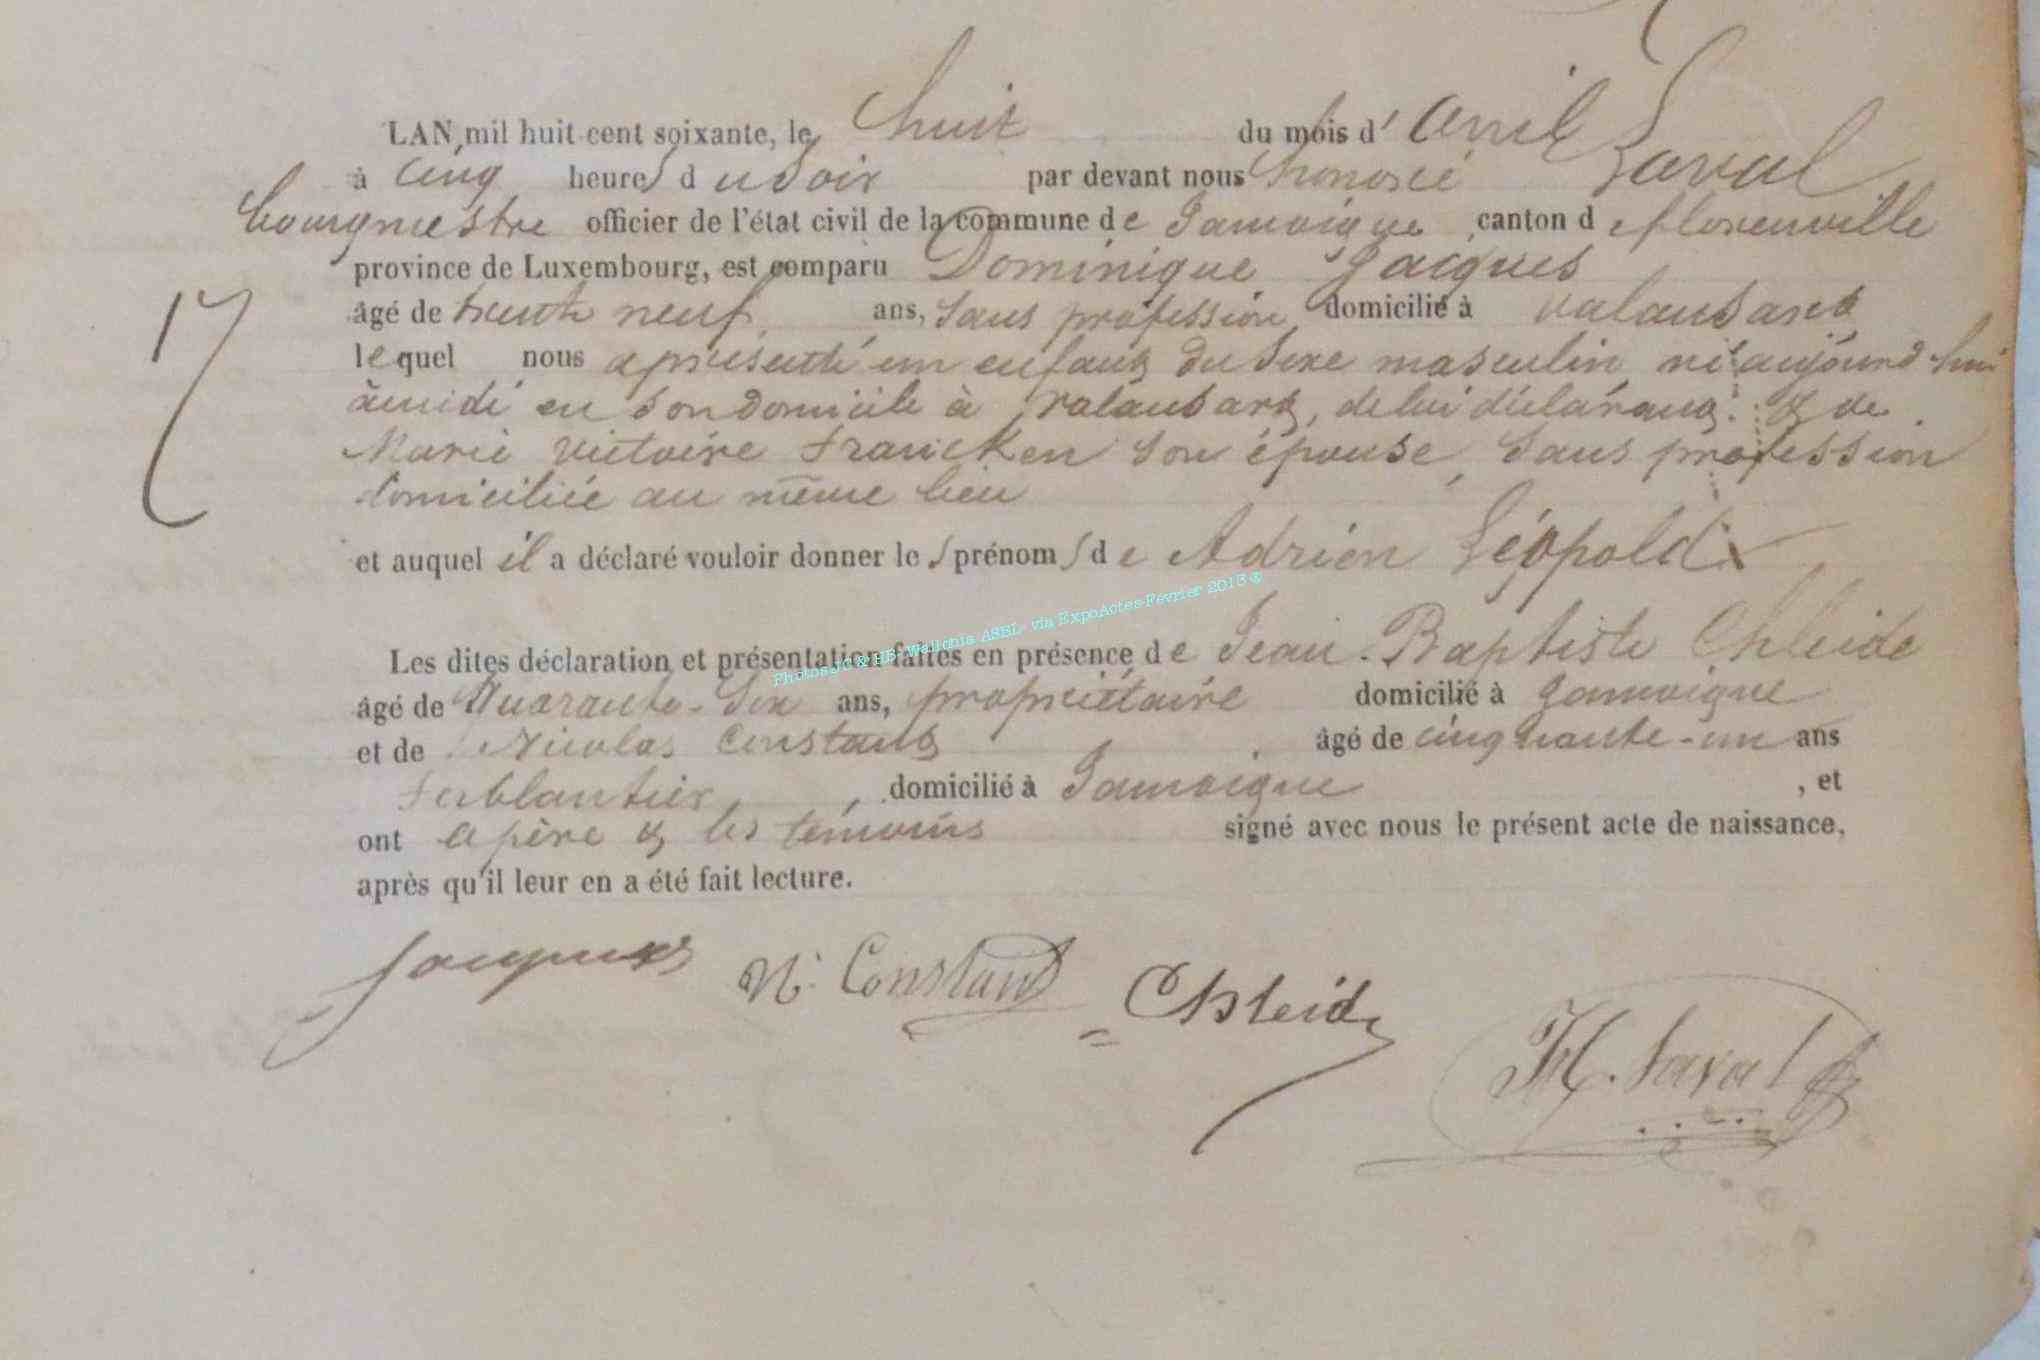 LAN mil huit cent soixante, le huit du mois d' avril
à cinq heures d u soir par devant nous honoré Laval
bourgmestre officier de l'état civil de la commune de Jamoigne canton d e florenville
province de Luxembourg, est comparu Dominique Jacques
âgé de trente neuf ans, sans profession domicilié à valansart
17
lequel nous a présenté un enfant du sexe masculin né aujourd hui
à midi en son domicile à valansart, de lui déclarant & de
Marie victoire Francken son épouse, sans profession
domiciliée au même lieu
et auquel il a déclaré vouloir donner le s prénom s de Adrien Léopold
Photos JC & HB- Wallonia ASBL- via ExpoActes-Février 2013 ©
Les dites déclaration et présentation faites en présence de Jean-Baptiste Chleide
âgé de Quarante-six ans, propriétaire domicilié à Jamoigne
et de Nicolas Constant âgé de cinquante-un ans
ferblantier, domicilié à Jamoigne , et
ont le père & les témoins signé avec nous le présent acte de naissance,
après qu'il leur en a été fait lecture.
Jacques N. Constant Chleide H. Laval